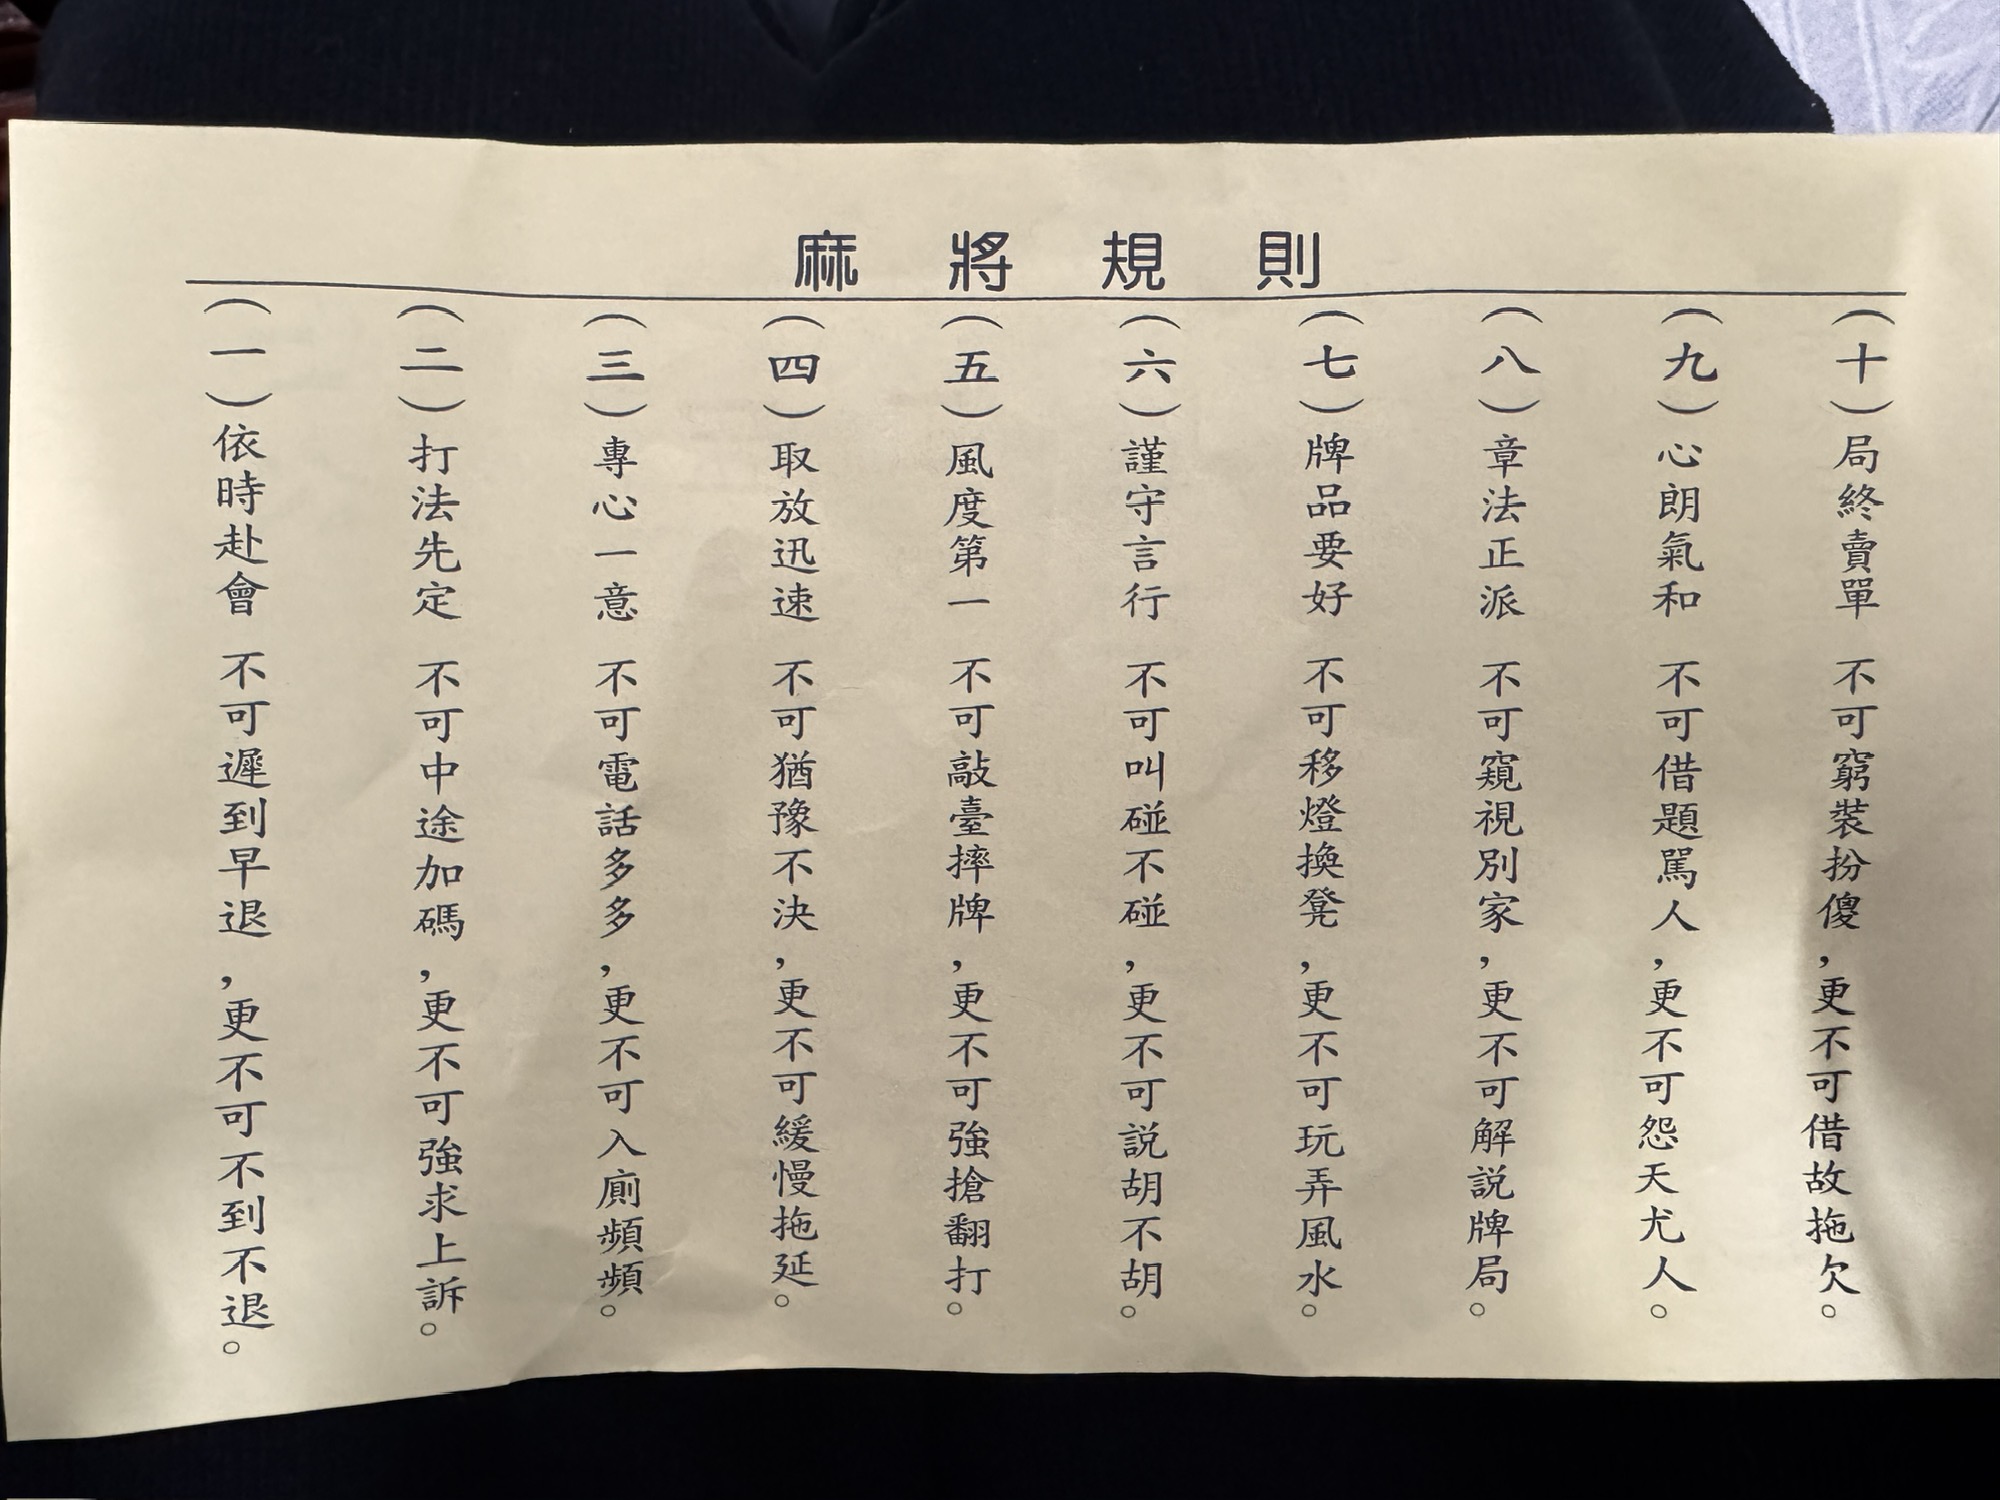 麻將規則
（一）依時赴會 不可遲到早退，更不可不到不退。
（二）打法先定 不可中途加碼，更不可強求上訴。
（三）專心一意 不可電話多多，更不可入廁頻頻。
（四）取放迅速 不可猶豫不決，更不可緩慢拖延。
（五）風度第一 不可敲臺摔牌，更不可強搶翻打。
（六）謹守言行 不可叫碰不碰，更不可說胡不胡。
（七）牌品要好 不可移燈換凳，更不可玩弄風水。
（八）章法正派 不可窺視別家，更不可解說牌局。
（九）心朗氣和 不可借題駡人，更不可怨天尤人。
（十）局終賣單 不可窮裝扮傻，更不可借故拖欠。